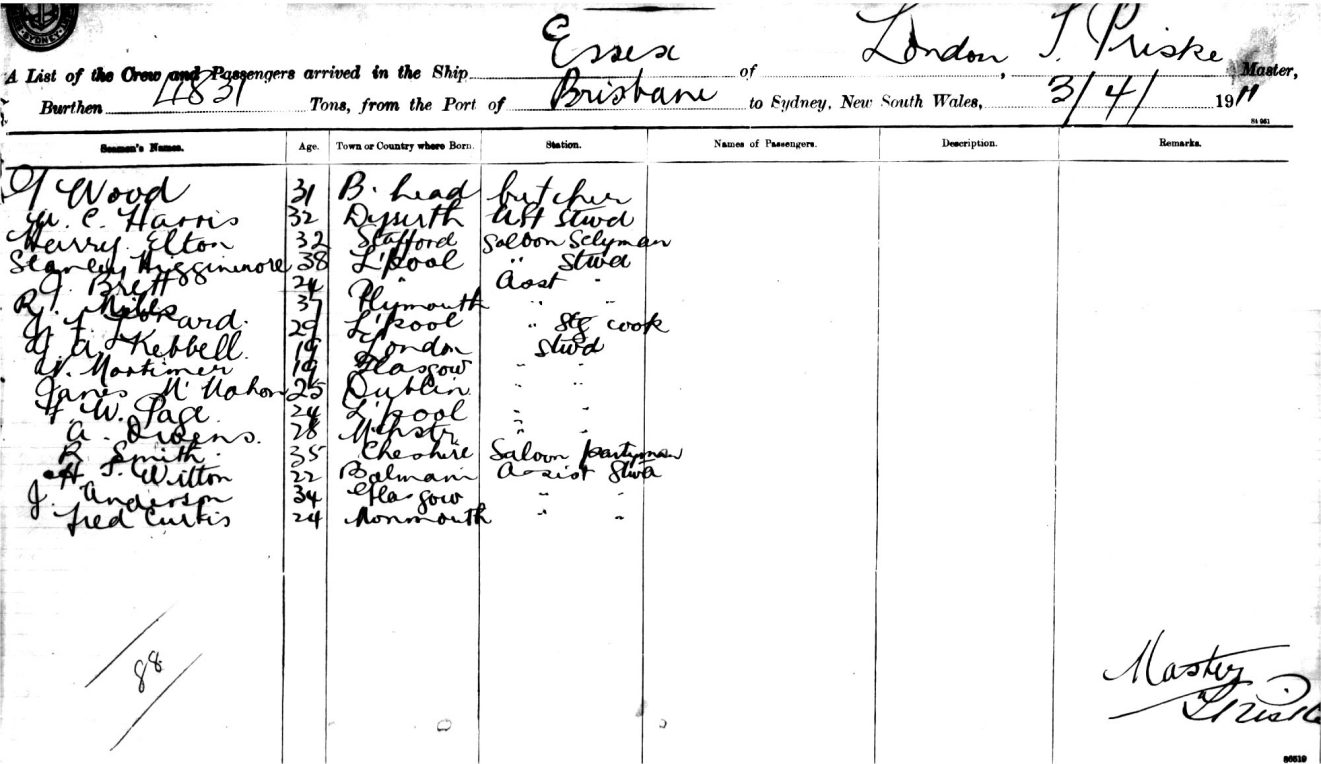 SYDNEY
A List of the Crew and Passengers arrived in the Ship Essex of London, T. Priske Master,
Burthen 4831 Tons, from the Port of Brisbane to Sydney, New South Wales, 3/4/ 1911
84 951
Seamen's Names. Age. Town or Country where Born. Station. Names of Passengers. Description. Remarks.
Wood 31 B. head butcher
W. C. Harris 32 Dyserth Aft Stwd
Harry Elton 32 Stafford Saloon
Stanley 38 L'pool " Stwd
J. Brett 24 " Asst "
R. 37 Plymouth " "
29 L'pool " Stg cook
A. Kebbell 19 London Stwd
Mortimer 19 Glasgow " "
James McMahon 25 Dublin " "
F. W. Page 24 L'pool " "
A. Owens. 28 " "
R. Smith. 35 Cheshire Saloon pantryman
H. J. Witton 22 Balmain Assist Stwd
J. Anderson 34 Glasgow " "
Fred Curtis 24 Monmouth " "
88
Master
T Priske
86519